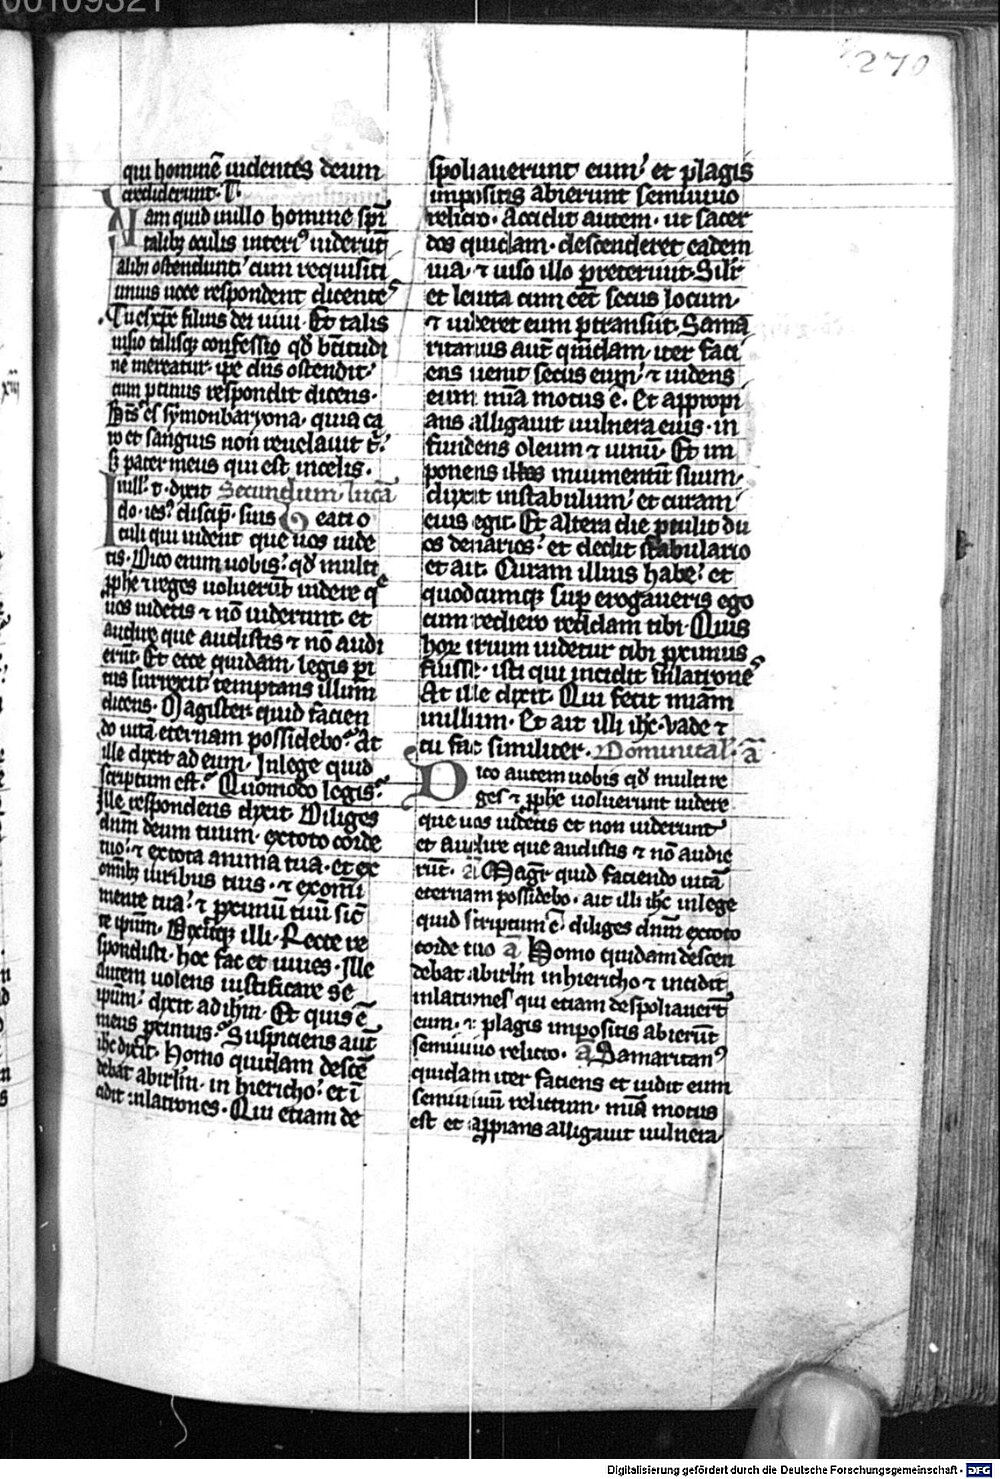 00109321
270
qui hominē uidentes deum
crediderunt. T.
Nam quid in illo homine spi
talibꝫ oculis interiꝰ uiderūt
alibi ostendunt. cum requisiti
unius uoce respondent dicentes
Tu es xpc filius dei uiui. Et talis
uisio talisqꝫ confessio qd̄ btitudi
nē mereatur. ipse dns ostendit.
cum ptinus respondit dicens.
Bt̄s es symon baryona. quia ca
ro et sanguis non reuelauit t̄.
sꝫ pater meus qui est in celis.
In ill. t. dixit Secundum lucā
do. ies. discip. suis Beati o
culi qui uident que uos uide
tis. Dico enim uobis. qd̄ multi
pphe ⁊ reges uoluerūt uidere q
uos uidetis ⁊ nō uiderunt. et
audire que auditis ⁊ nō audi
erūt. Et ecce quidam legis pi
tus surrexit. temptans illum
dicens. Magister quid facien
do uitā eternam possidebo. At
ille dixit ad eum. In lege quid
scriptum est. Quomodo legis.
Ille respondens dixit. Diliges
dnm̄ deum tuum. ex toto corde
tuo. ⁊ ex tota anima tua. et ex
omībꝫ uiribus tuis. ⁊ ex omi
mente tua. ⁊ pximū tuū sic̄
te ipsum. Dixitqꝫ illi. Recte re
spondisti. hoc fac et uiues. Ille
autem uolens iustificare se
ipsum. dixit ad ihm. Et quis ē
meus pximus. Suspiciens aut̄
ihc dixit. Homo quidam descē
debat ab irlm. in hiericho. et ī
cidit in latrones. Qui etiam de
spoliauerunt eum. et plagis
impositis abierunt semiuiuo
relicto. Accidit autem. ut sacer
dos quidam. descenderet eadem
uia. ⁊ uiso illo preteriuit. Silr
et leuita cum cēt secus locum.
⁊ uideret eum ptransiit. Sama
ritanus aut̄ quidam. iter faci
ens uenit secus eum. ⁊ uidens
eum mīa motus ē. Et appropi
ans alligauit uulnera eius. in
fundens oleum ⁊ uinū. Et im
ponens illos in iumentū suum.
duxit in stabulum. et curam
eius egit. Et altera die ptulit du
os denarios. et dedit stabulario
et ait. Curam illius habe. et
quodcumqꝫ sup erogaueris ego
cum rediero reddam tibi. Quis
hoꝝ trium uidetur tibi pximus
fuisse. isti qui incidit in latrones
At ille dixit. Qui fecit miam̄
in illum. Et ait illi ihc. Vade ⁊
tu fac similiter. Dominical. ā
Dico autem uobis qd̄ multi re
ges ⁊ pphe uoluerunt uidere
que uos uidetis et non uiderunt
et audire que auditis ⁊ nō audie
rūt. ā Magr̄ quid faciendo uitā
eternam possidebo. ait illi ihc in lege
quid scriptum ē. diliges dnm̄ ex toto
corde tuo ā Homo quidam descen
debat ab irlm in hiericho ⁊ incidit
in latrones qui etiam despoliauerūt
eum. ⁊ plagis impositis abierūt
semiuiuo relicto. ā Samaritanꝰ
quidam iter faciens et uidit eum
semiuiuū relictum. mīa motus
est et appians alligauit uulnera
Digitalisierung gefördert durch die Deutsche Forschungsgemeinschaft - DFG